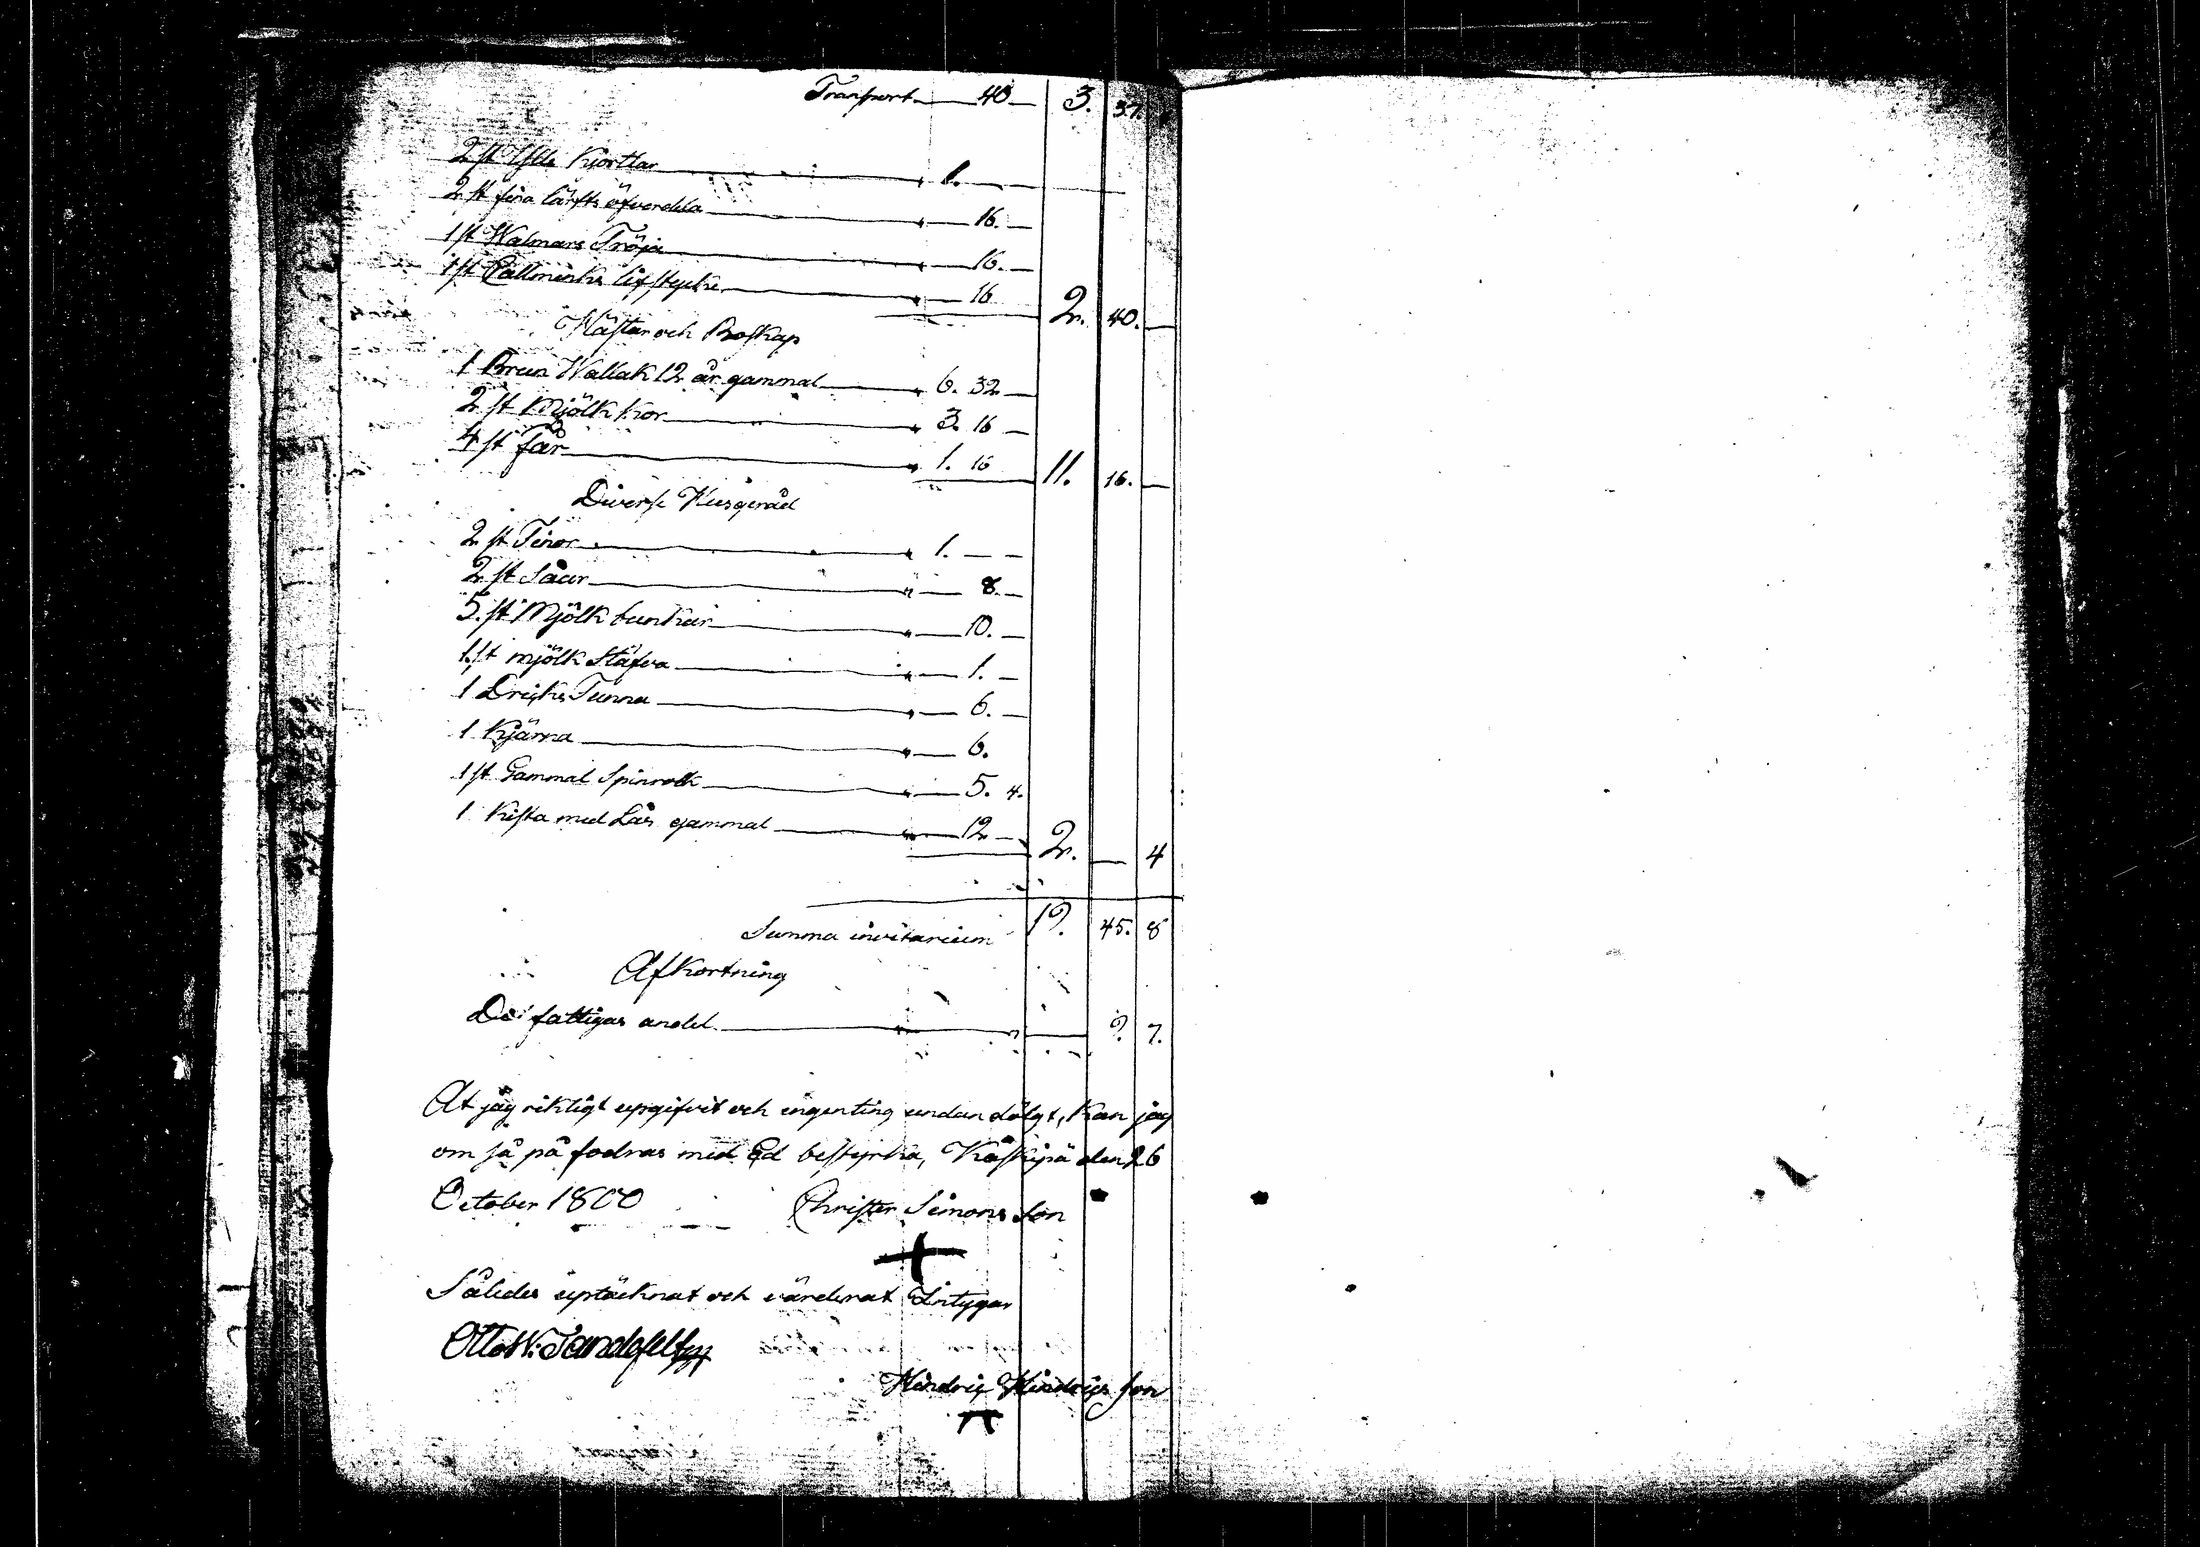 Transport 40 3. 37.
2 st Ylle Kjortlar 1.
2 st fina lärfts öfverdela 16.
1 st Walmars Tröja 16.
1 st Callminks lifstycke 16 2. 40.
Hästar och Boskap
1 Brun Wallak 12 år gammal 6. 32
2 st Mjölk Kor 3. 16
4 st får 1. 16 11. 16.
Diverse Husgeråd
2 st Tinor 1.
2 st Såar 8.
5. st Mjölk bunkar 10.
1. st mjölk Stäfva 1.
1 Dricks Tunna 6.
1 Kjärna 6.
1 st Gammal Spinrock 5. 4.
1 Kista med Lås gammal 12 2. 4
Summa invitarium 19. 45. 8
Afkortning
De fattigas andel 9. 7.
At jag riktigt upgifvit och ingenting undan dölgt, Kan jag
om så på fodras med Ed bestyrka, den 26
October 1800 Christer Simons Son
Således uptäcknat och värderat Intygar
Otto W:
Hindric Hindrics son